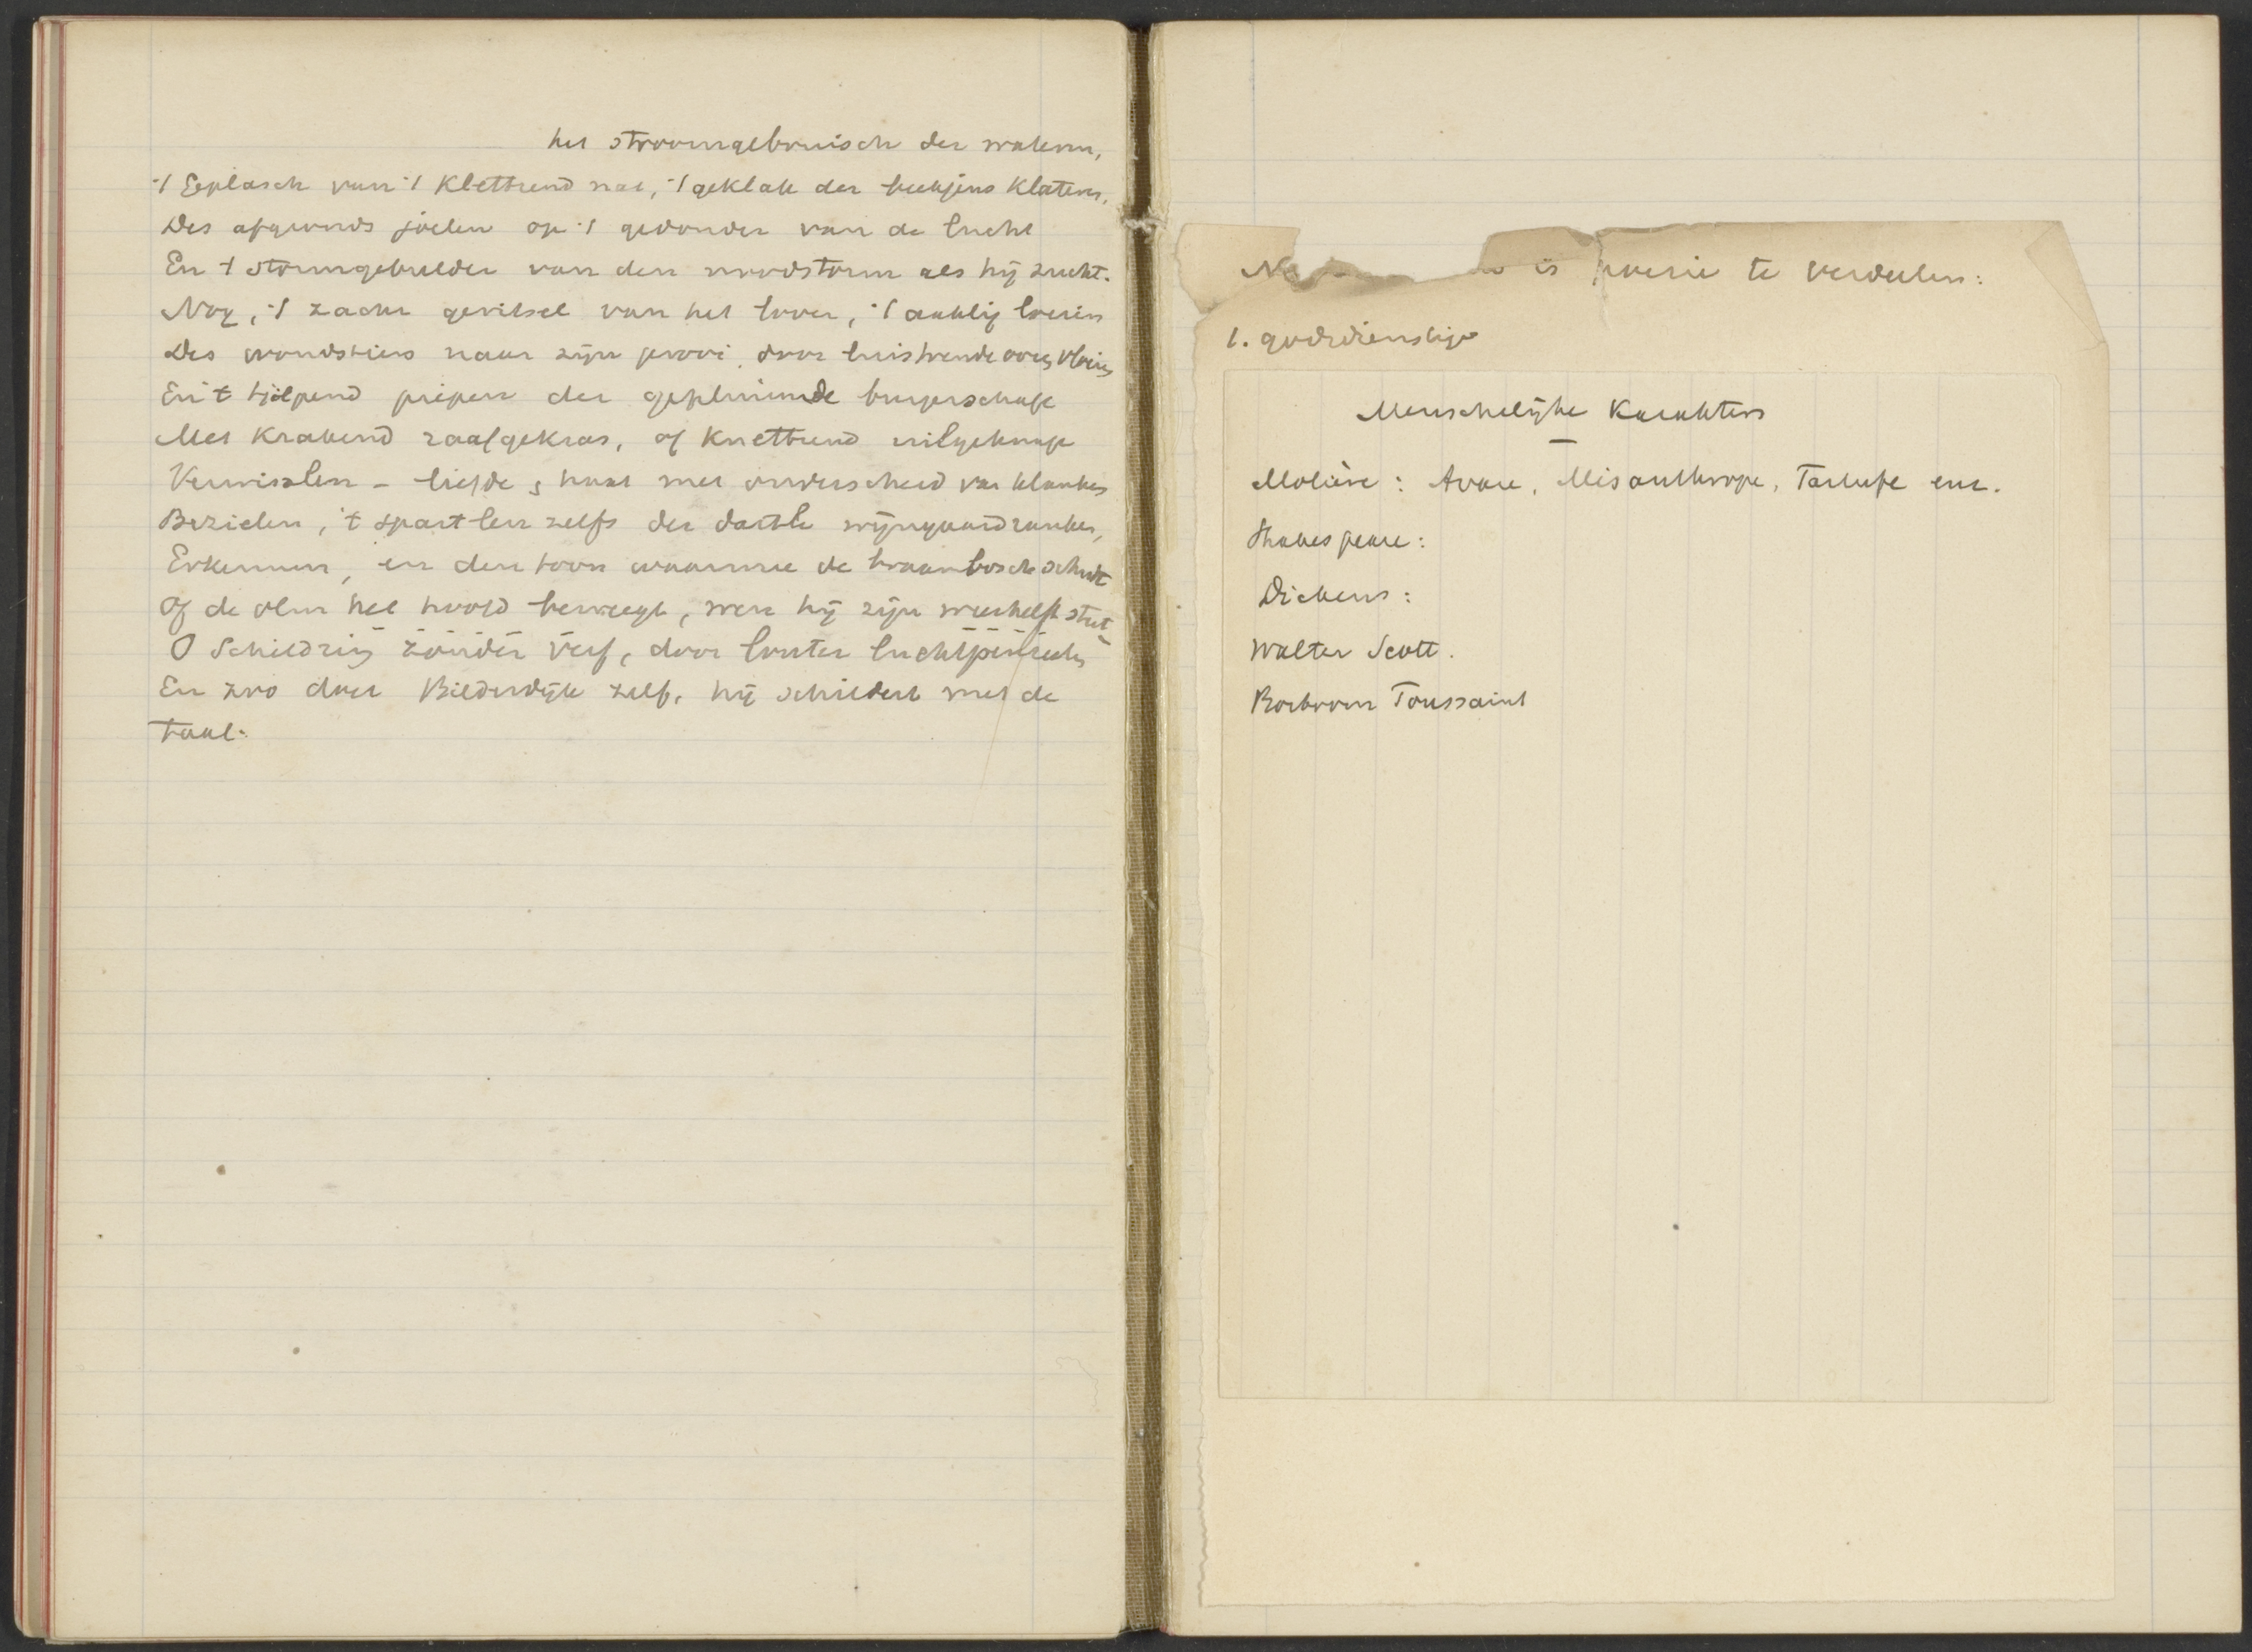 het stroomgebruisch der wateren,
't Geplasch van 't klettrend nat, 't geklak der beekjens klateren,
Des afgronds joelen op 't gedonder van de lucht
En 't stormgebulder van den noodstorm als hij zucht.
Nog, 't zacht geritsel van het loover, 't aaklig loeien
Des woudstiers naar zijn prooi door luistrende ooren vloeien
En 't tjilpend piepen der gepluimde burgerschap
Met krakend raafgekras, of knettrend uilgeknap
Verwisslen - liefde, haat met onderscheid van klanken
Bezielen, 't spartlen zelfs der dartle wijngaardranken,
Erkennen, en den toon waarmee de braambosch schudt
Of de olm het hoofd beweegt, wen hij zijn weerhelft stut
O Schildring zonder verf, door louter luchtpenseelen
En zoo doet Bilderdijk zelf, hij schildert met de
taal.
is poesie te verdeelen:
1. godsdienstige
Menschelijke Karakters
Molière: Avare, Misanthrope, Tartufe enz.
Shakespeare:
Dickens:
Walter Scott.
Bosboom Toussaint